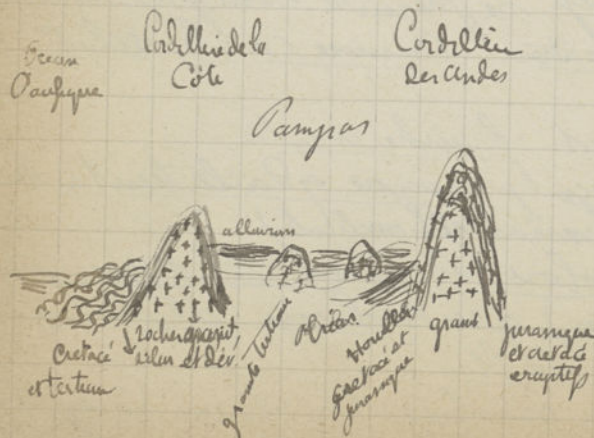 Océan
Pacifique
Cordillère de la
Côte
Cordillère
des Andes
Pampas
alluvions
Crétacé
et tertiaire
roches granit,
silur et dév,
granite tertiaire
Houiller
crétacé et
jurassique
granit
jurassique
et crétacé
éruptifs